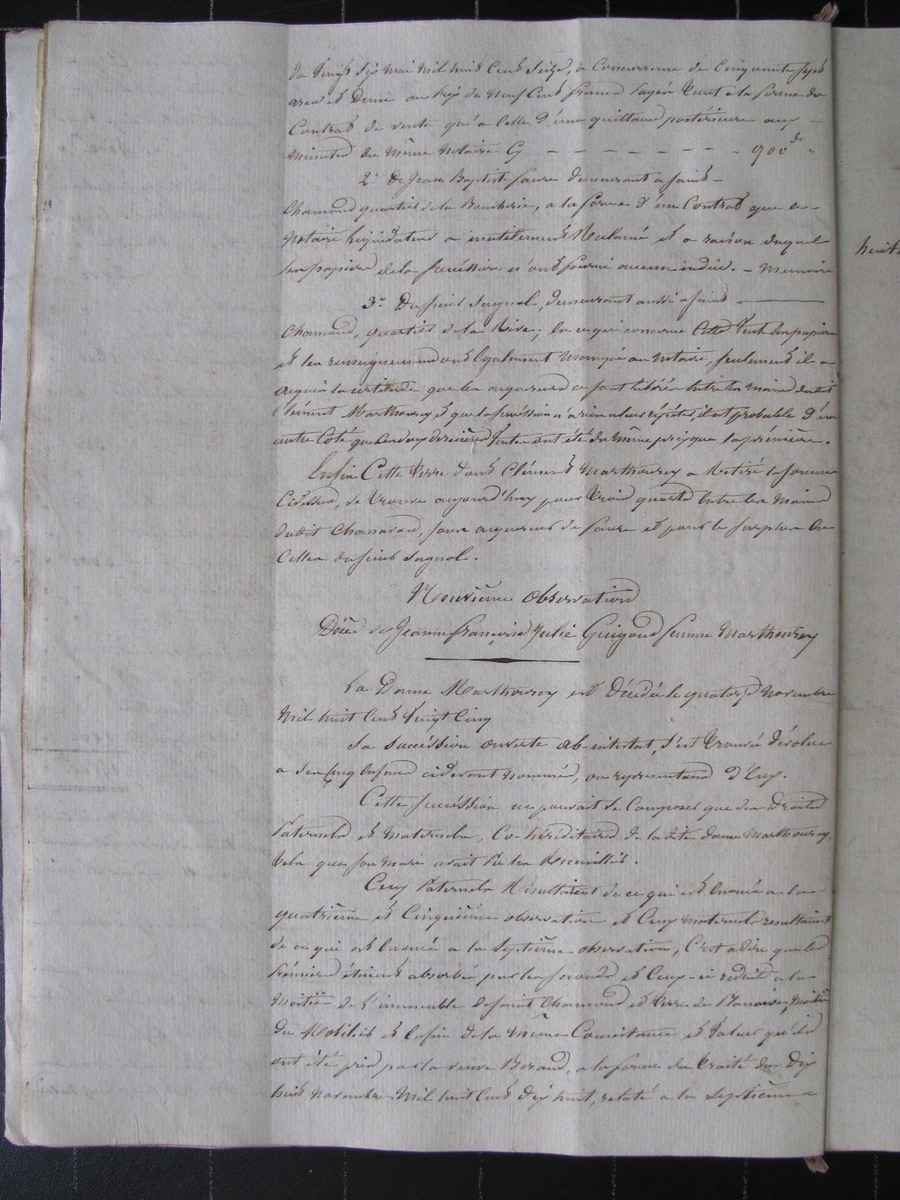 du vingt six mai mil huit cent seize, a concurrence de cinquante sept
ares et demi au prix de neuf cent francs payés tant a la forme du
contrat de vente qu'a celle d'une quittance postérieure aux
minutes du même notaire Cy - - - - - - - 900 fr "
2° De Jean Baptiste faure demeurant a saint
Chamond quartier de la Boucherie, a la forme d'un contrat que le
notaire liquidateur a inutilement réclamé et a raison duquel
les papiers de la succession n'ont fourni aucun indice. - Memoire
3° Du sieur Sagnol, demeurant aussi a saint
Chamond, quartier de la Rive; en ce qui concerne cette vente les papiers
et les renseignemens ont également manqué au notaire, seulement il a
acquis la certitude que les acquereurs se sont libérés entre les mains dudit
Clément Marthourey et que la succession a rien a leur répéter; il est probable d'un
autre coté que les deux dernières ventes ont été du même prix que la première.
Enfin cette terre dont Clément Marthourey a retiré la somme
ci dessus, se trouve aujourd'huy pour trois quarts entre les mains
dudit Chanaron, sous acquereur de faure et pour le surplus en
celles du sieur Sagnol.
Neuvième observation
Décès de Jeanne françoise Julie Guigoud femme Marthourey
La Dame Marthourey est décédée le quatorze novembre
mil huit cent vingt cinq
Sa succession ouverte ab-intestat, s'est trouvée dévolue
a ses cinq enfans ci devant nommés, ou représentans d'eux.
Cette succession ne pouvait se composer que des droits
paternels et maternels, co-héréditaires de la dite dame Marthourey,
tels que son mari avait pu les recueillir.
Ceux paternels résultaient de ce qui est énoncé a la
quatrième et cinquième observation et ceux maternels resultaient
de ce qui est énoncé a la septième observation, c'est a dire que les
premiers étaient absorbés par les seconds et ceux-ci réduit a la
moitié de l'immeuble de saint Chamond et terre de moitié
du mobilier et enfin de la même consistance et valeur qu'ils
ont été pris par la veuve Beraud, a la forme du traité du dix
huit novembre mil huit cent dix huit, relaté a la septième
huit